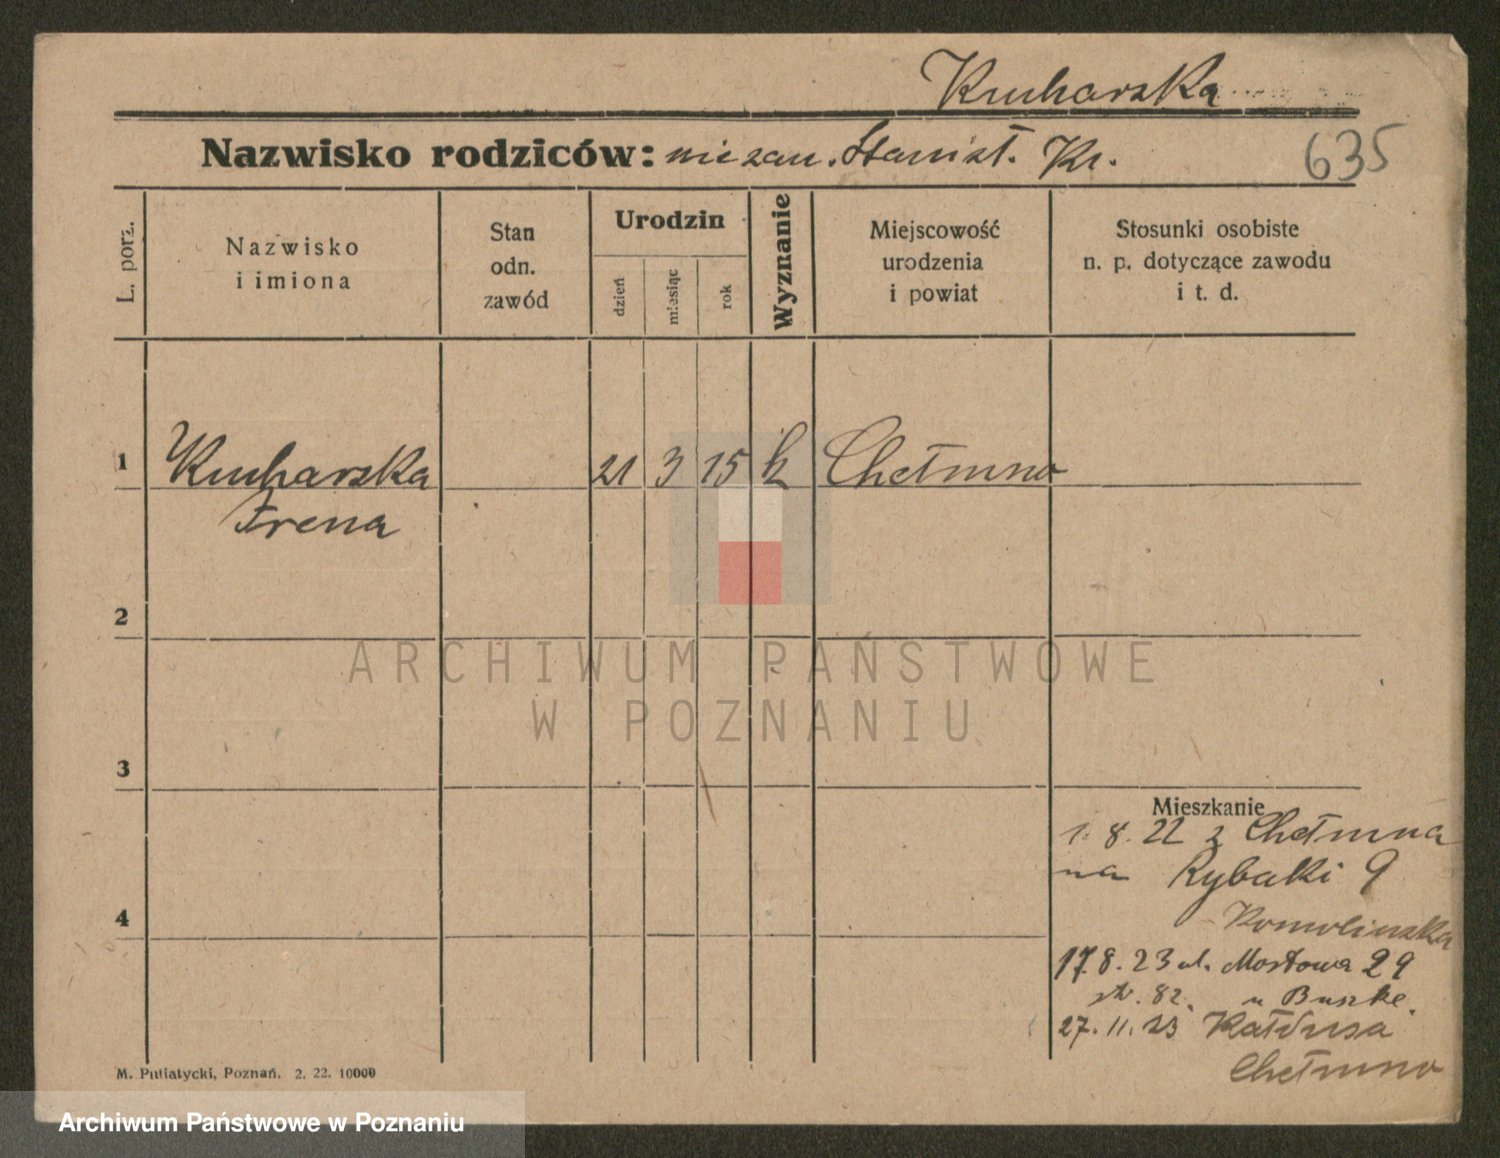 Kucharska
Nazwisko rodziców: niezam. Stanisł. Kr.
635
L. porz.
Nazwisko
i imiona
Stan
odn.
zawód
Urodzin
dzień
miesiąc
rok
Wyznanie
Miejscowość
urodzenia
i powiat
Stosunki osobiste
n. p. dotyczące zawodu
i t. d.
1
Kucharska
Irena
21 3 15 k Chełmno
2
ARCHIWUM PAŃSTWOWE
W POZNANIU
3
Mieszkanie
1. 8. 22 z Chełmna
na Rybaki 9
4
17.8.23 ul. Mostowa 29
str. 82. u Buszke.
27.11.23 Kałdusa
Chełmno
M. Putiatycki, Poznań. 2. 22. 10000
Archiwum Państwowe w Poznaniu